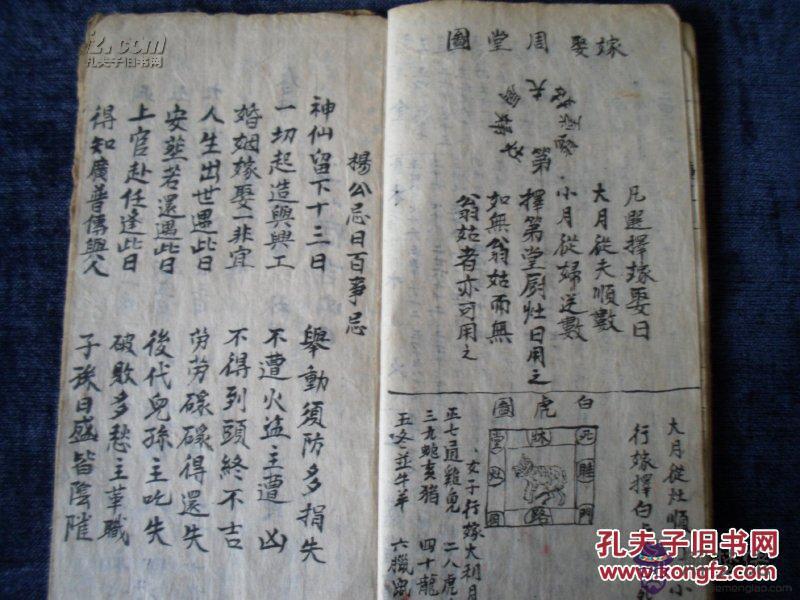 嫁娶周堂圖
夫
姑
第
凡選擇嫁娶日
大月從夫順數
小月從婦逆數
擇第堂厨灶日用之
如無翁姑而無
翁姑者亦可用之
大月從灶順
小
行嫁擇白
白虎圖
死睡門
床
路
堂灶厨
女子行嫁大利月
正七迎雞兔
二八虎
三九蛇亥豬
四十龍
五冬並牛羊
六臘鼠
楊公忌日百事忌
神仙留下十三日
舉動須防多損失
一切起造與興工
不遭火盗主遭凶
婚姻嫁娶一非宜
不得到頭終不吉
人生出世遇此日
勞勞碌碌得還失
安葬若還遇此日
後代兒孫主吃失
上官赴任逢此日
破敗多愁主革職
得知廣普傳與人
子孫日盛皆陰隲
孔夫子旧书网
孔夫子旧书网